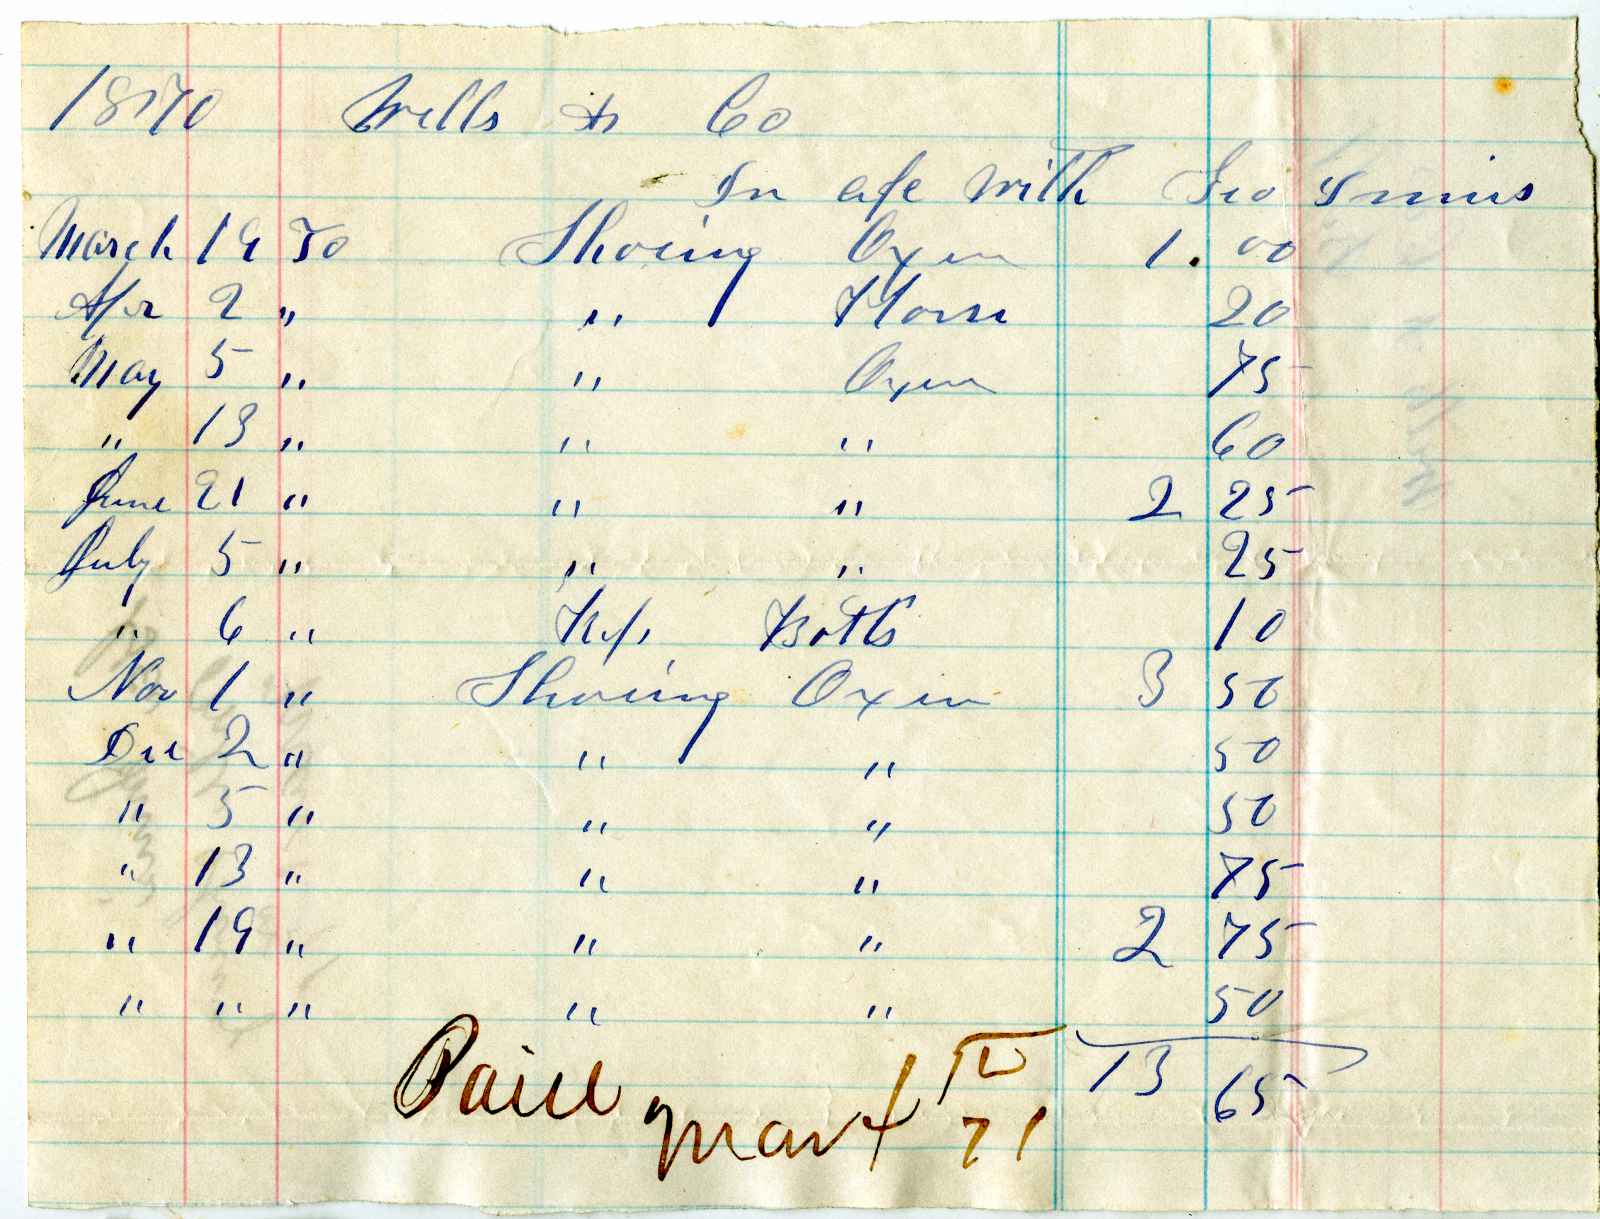 1870 Wells & Co
In a/c with Geo Innis
March 19 To Shoeing Oxen 1.00
Apr 2 " " Horse 20
May 5 " " Oxen 75
" 13 " " " 60
June 21 " " " 2 25
July 5 " " " 25
" 6 " Botts 10
Nov 1 " Shoeing Oxen 3 50
Dec 2 " " " 50
" 5 " " " 50
" 13 " " " 75
" 19 " " " 2 75
" " " " " 50
13 65
Paid
71